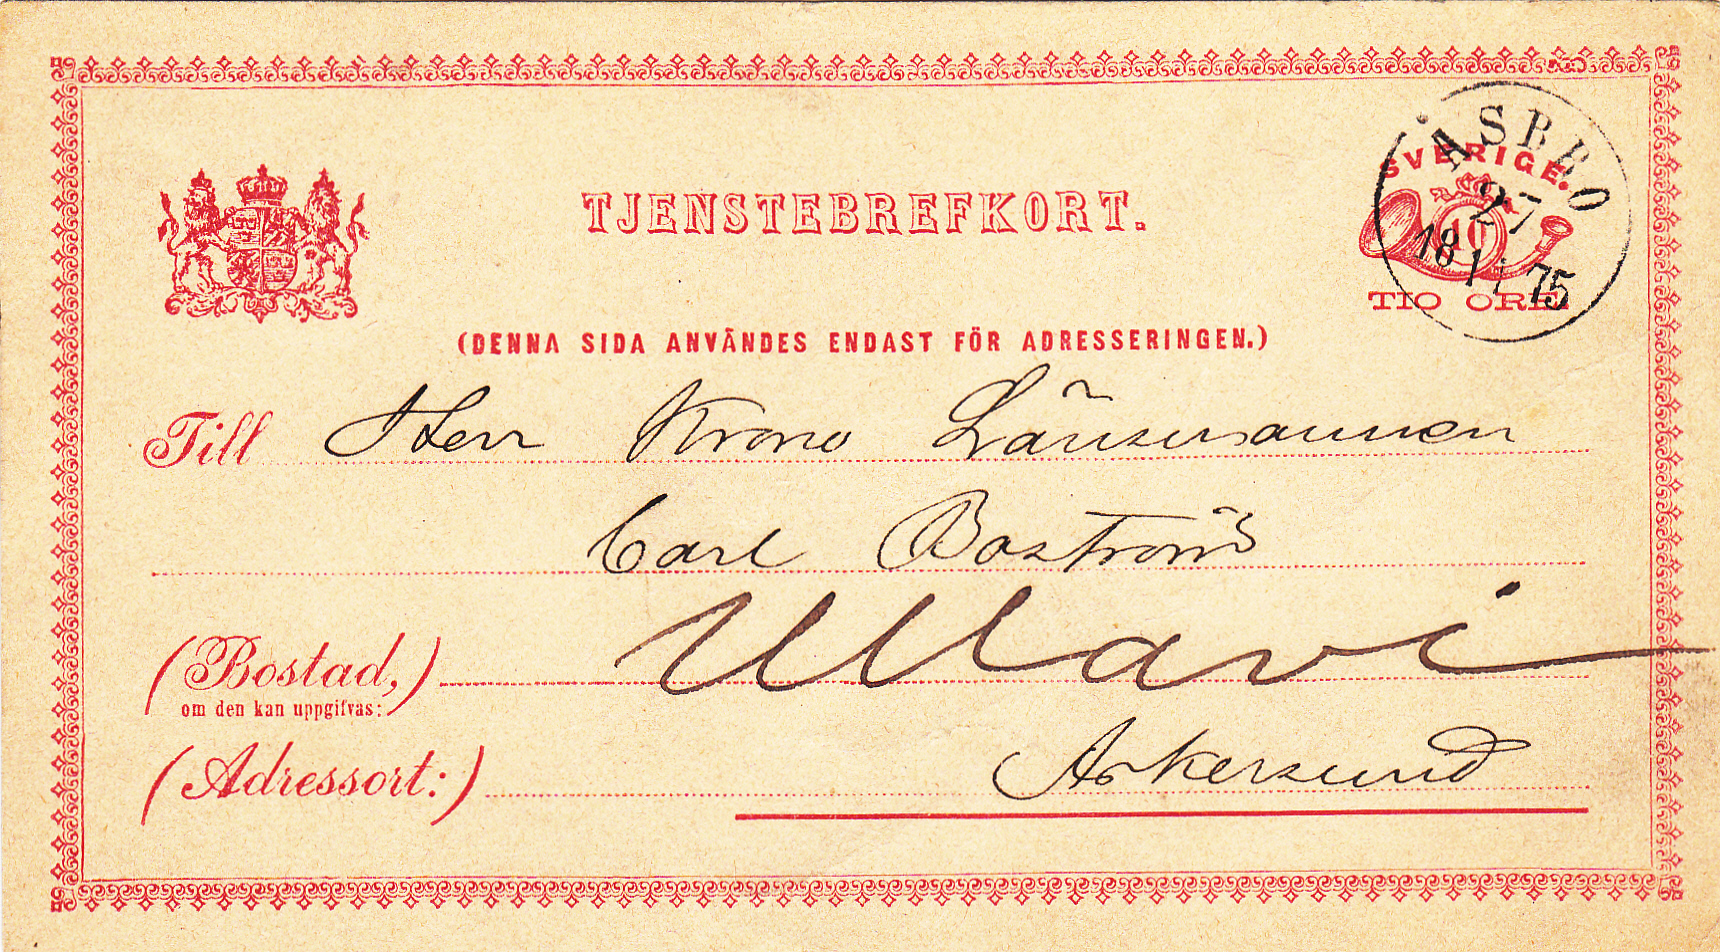 TJENSTEBREFKORT.
SVERIGE.
10
TIO ORE
ASBRO
27
18 11 75
(DENNA SIDA ANVÄNDES ENDAST FÖR ADRESSERINGEN.)
Till Herr Krono Länsmannen
Carl Boström
(Bostad,) Ullavi
om den kan uppgifvas:
(Adressort:) Askersund